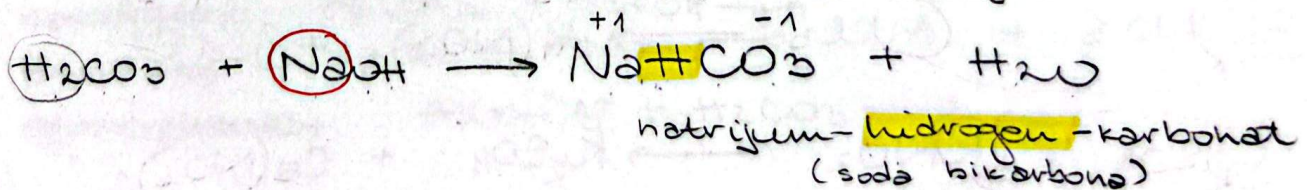 +1 -1
H2CO3 + NaOH → NaHCO3 + H2O
natrijum-hidrogen-karbonat
(soda bikarbona)